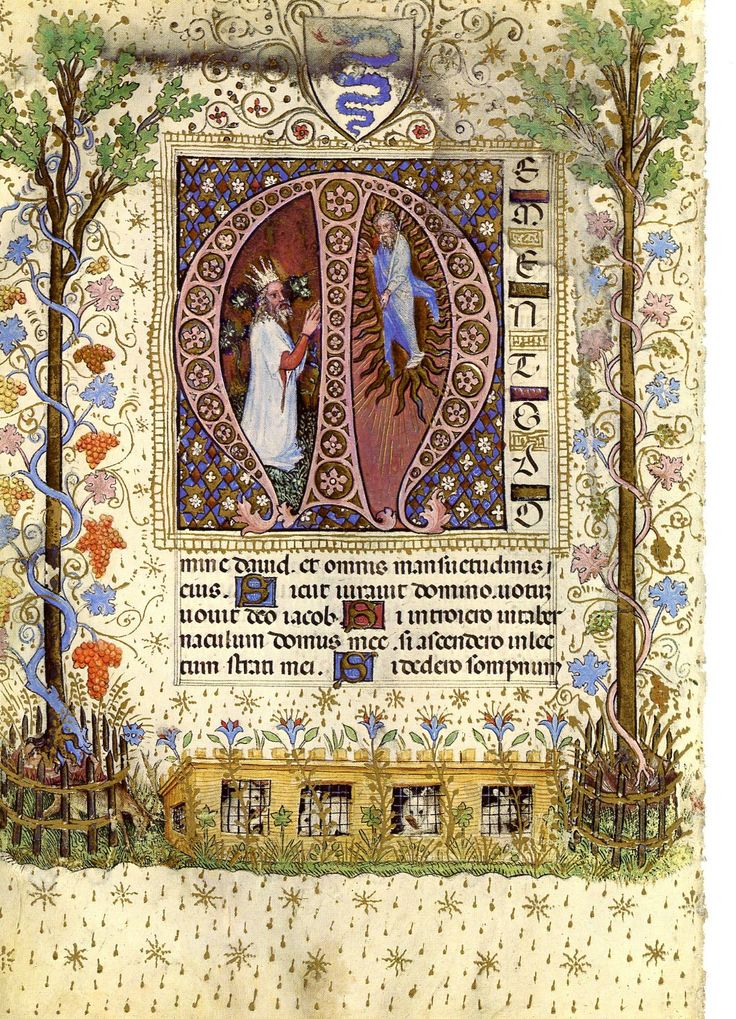 M
EMENTO DO
mine dauid. et omnis mansuetudinis
eius. Sicut iurauit domino. uotuz
uouit deo iacob. Si introiero in taber
naculum domus mee. si ascendero in lec
tum strati mei. Si dedero sompnum